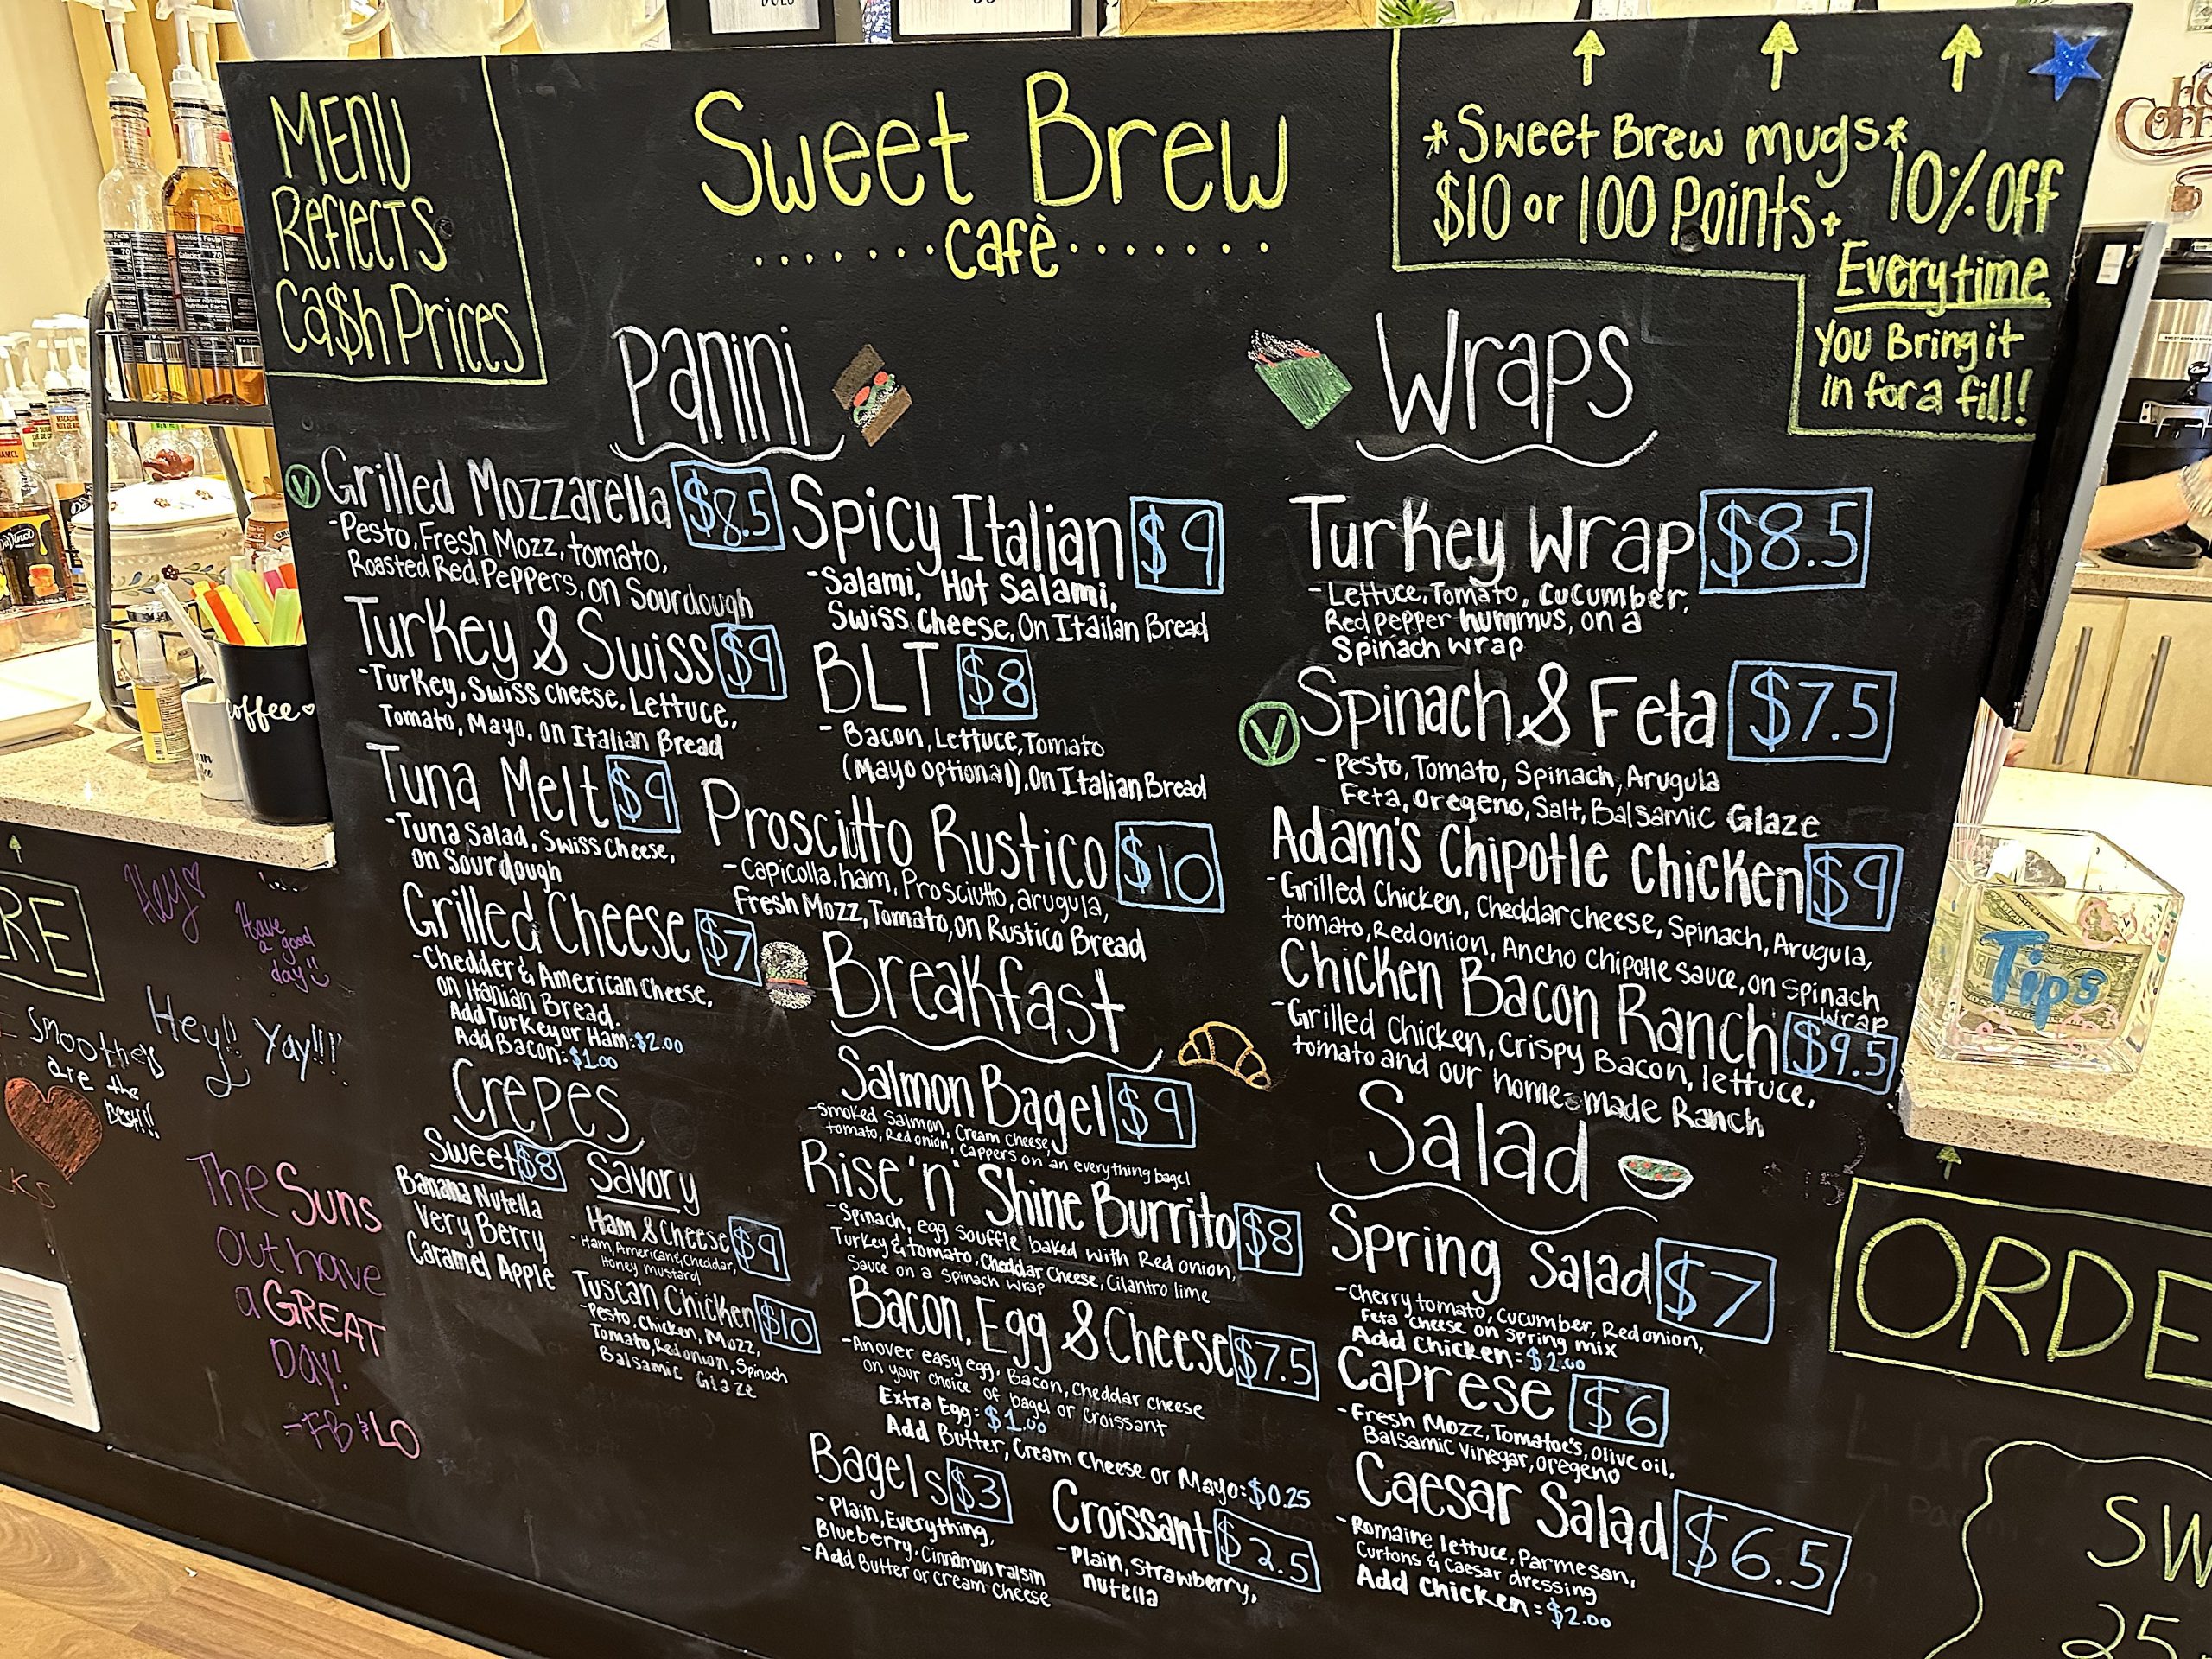 MENU
Reflects
Ca$h Prices
Sweet Brew
cafè
*Sweet Brew mugs*
$10 or 100 Points + 10% Off
Everytime
you Bring it
in for a fill!
Panini
V Grilled Mozzarella $8.5
-Pesto, Fresh Mozz, tomato,
Roasted Red Peppers, on Sourdough
Turkey & Swiss $9
-Turkey, Swiss cheese, Lettuce,
Tomato, Mayo, on Italian Bread
Tuna Melt $9
-Tuna Salad, Swiss Cheese,
on Sourdough
Grilled Cheese $7
-Chedder & American Cheese,
on Itanian Bread.
Add Turkey or Ham: $2.00
Add Bacon: $1.00
Spicy Italian $9
-Salami, Hot Salami,
Swiss Cheese, On Itailan Bread
BLT $8
- Bacon, Lettuce, Tomato
(Mayo optional), On Italian Bread
Prosciutto Rustico $10
-Capicolla, ham, Prosciutto, arugula,
Fresh Mozz, Tomato, on Rustico Bread
Wraps
Turkey Wrap $8.5
-Lettuce, Tomato, cucumber,
Red pepper hummus, on a
Spinach wrap
V Spinach & Feta $7.5
- Pesto, Tomato, Spinach, Arugula
Feta, Oregeno, Salt, Balsamic Glaze
Adam's Chipotle Chicken $9
-Grilled Chicken, Cheddar cheese, Spinach, Arugula,
tomato, Red onion, Ancho Chipotle sauce, on spinach
wrap
Chicken Bacon Ranch $9.5
-Grilled Chicken, Crispy Bacon, lettuce,
tomato and our home-made Ranch
Crepes
Sweet $8
Banana Nutella
Very Berry
Caramel Apple
Savory
Ham & Cheese $9
-Ham, American & Cheddar,
Honey mustard
Tuscan Chicken $10
-Pesto, Chicken, Mozz,
Tomato, Red onion, Spinach
Balsamic Glaze
Breakfast
Salmon Bagel $9
-Smoked Salmon, Cream Cheese,
tomato, Red onion, Cappers on an everything bagel
Rise 'n' Shine Burrito $8
-Spinach, egg souffle baked with Red onion,
Turkey & tomato, Cheddar Cheese, Cilantro lime
Sauce on a spinach wrap
Bacon, Egg & Cheese $7.5
-An over easy egg, Bacon, Cheddar cheese
on your choice of bagel or Croissant
Extra Egg: $1.00
Add Butter, Cream Cheese or Mayo: $0.25
Bagels $3
-Plain, Everything,
Blueberry, Cinnamon raisin
-Add Butter or cream cheese
Croissant $2.5
-Plain, Strawberry,
nutella
Salad
Spring Salad $7
-Cherry tomato, Cucumber, Red onion,
Feta cheese on Spring mix
Add Chicken: $2.00
Caprese $6
-Fresh Mozz, Tomatoe's, olive oil,
Balsamic Vinegar, Oregeno
Caesar Salad $6.5
-Romaine lettuce, Parmesan,
Curtons & Caesar dressing
Add Chicken: $2.00
coffee
Tips
RE
Hey
Have
a good
day
Smoothers
are the
Best!!
Hey!! Yay!!!
The Suns
out have
a GREAT
DAY!
-FB & LO
ORDE
SW
25